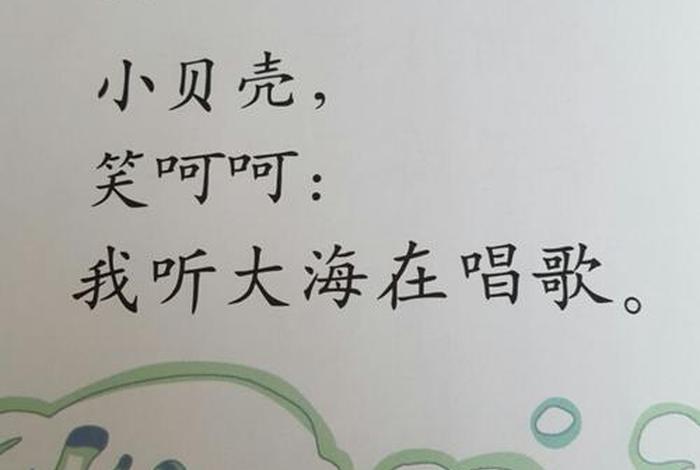 小贝壳，
笑呵呵：
我听大海在唱歌。